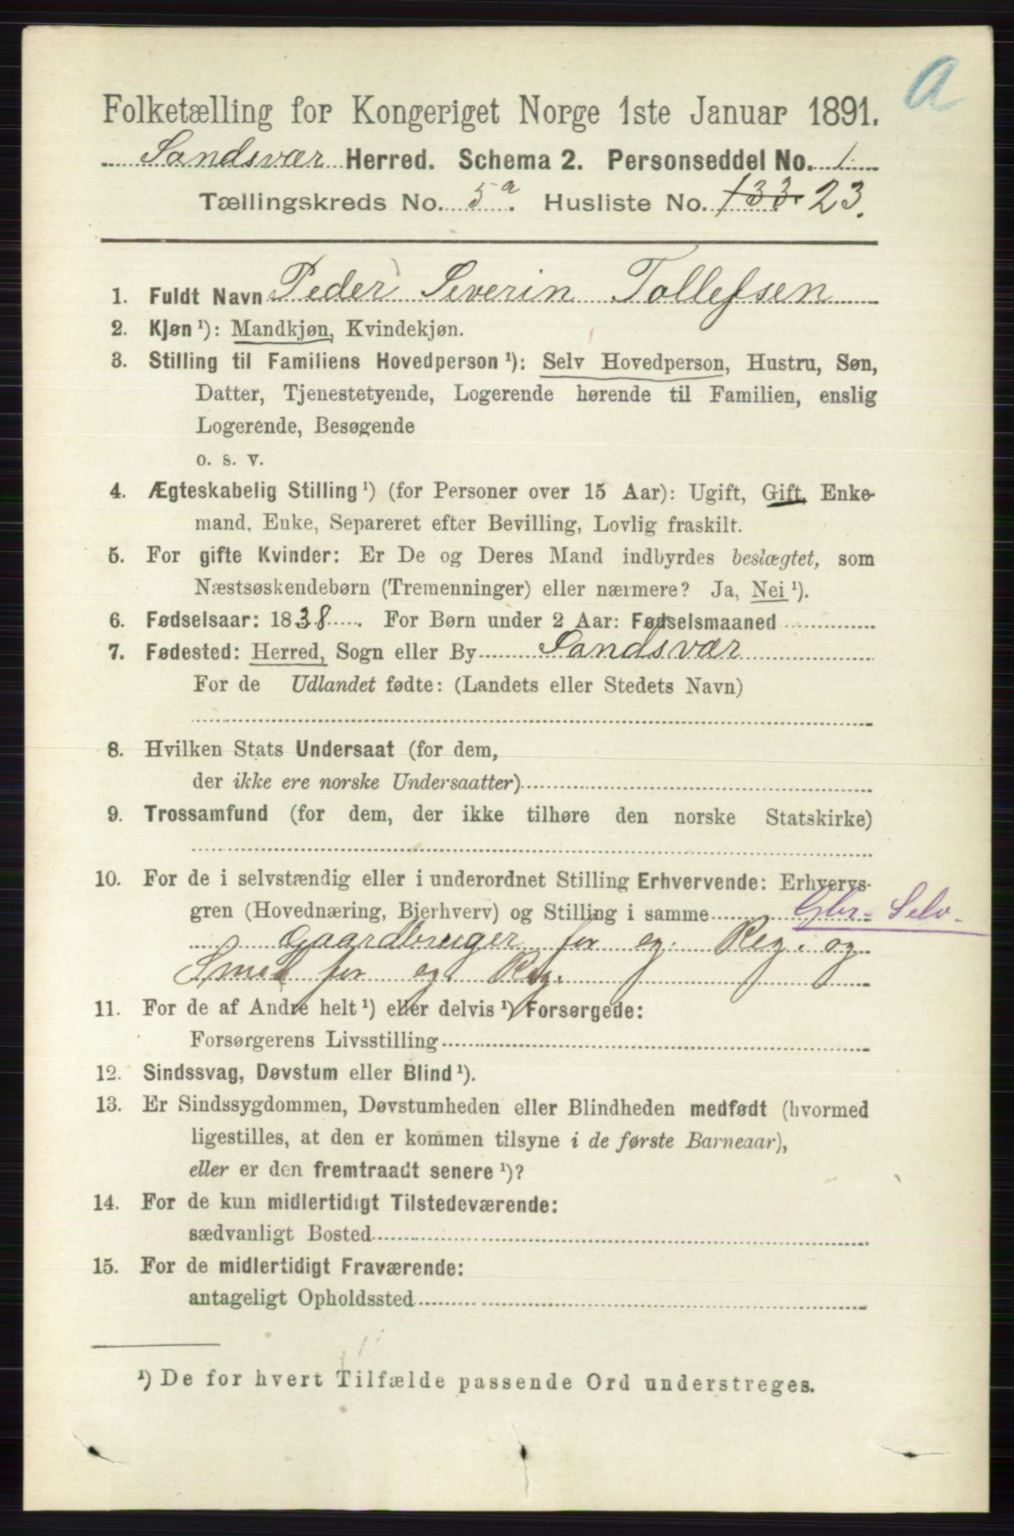 a
Folketælling for Kongeriget Norge 1ste Januar 1891.
Sandsvær Herred. Schema 2. Personseddel No. 1
Tællingskreds No. 5a. Husliste No. 133. 23.
1. Fuldt Navn Peder Severin Tollefsen
2. Kjøn ¹): Mandkjøn, Kvindekjøn.
3. Stilling til Familiens Hovedperson ¹): Selv Hovedperson, Hustru, Søn,
Datter, Tjenestetyende, Logerende hørende til Familien, enslig
Logerende, Besøgende
o. s. v.
4. Ægteskabelig Stilling ¹) (for Personer over 15 Aar): Ugift, Gift, Enke-
mand, Enke, Separeret efter Bevilling, Lovlig fraskilt.
5. For gifte Kvinder: Er De og Deres Mand indbyrdes beslægtet, som
Næstsøskendebørn (Tremenninger) eller nærmere? Ja, Nei ¹).
6. Fødselsaar: 1838. For Børn under 2 Aar: Fødselsmaaned
7. Fødested: Herred, Sogn eller By Sandsvær
For de Udlandet fødte: (Landets eller Stedets Navn)
8. Hvilken Stats Undersaat (for dem,
der ikke ere norske Undersaatter)
9. Trossamfund (for dem, der ikke tilhøre den norske Statskirke)
10. For de i selvstændig eller i underordnet Stilling Erhvervende: Erhvervs-
gren (Hovednæring, Bierhverv) og Stilling i samme Gbr - Selv -
Gaardbruger for eg. Reg. og
Smed for eg. Reg.
11. For de af Andre helt ¹) eller delvis ¹) Forsørgede:
Forsørgerens Livsstilling
12. Sindssvag, Døvstum eller Blind ¹).
13. Er Sindssygdommen, Døvstumheden eller Blindheden medfødt (hvormed
ligestilles, at den er kommen tilsyne i de første Barneaar),
eller er den fremtraadt senere ¹)?
14. For de kun midlertidigt Tilstedeværende:
sædvanligt Bosted
15. For de midlertidigt Fraværende:
antageligt Opholdssted
¹) De for hvert Tilfælde passende Ord understreges.